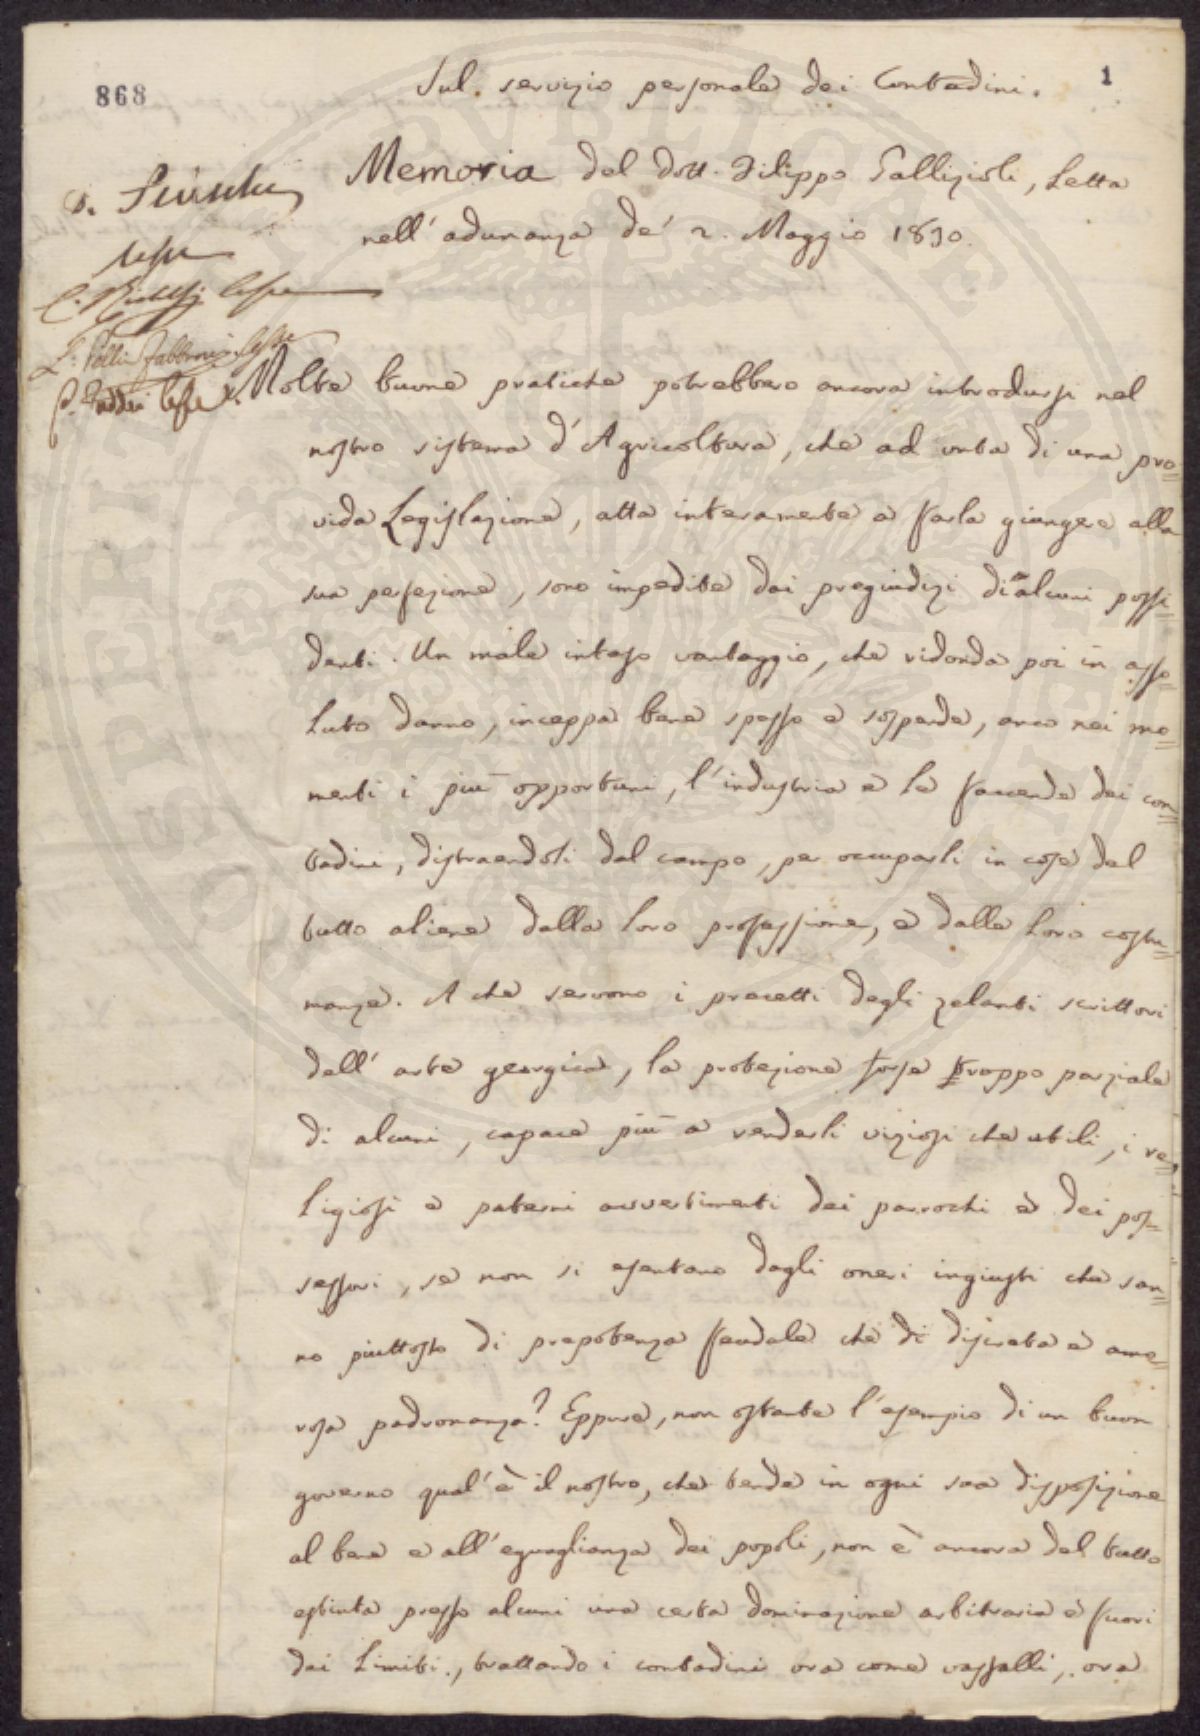 868
1
Sul servizio personale dei Contadini.
Memoria del Dott. Filippo Gallizioli, Letta
nell' adunanza de' 2. Maggio 1830.
Molte buone pratiche potrebbero ancora introdursi nel
nostro sistema d' Agricoltura, che ad onta di una pro=
vida Legislazione, atta interamente a farla giungere alla
sua perfezione, sono impedite dai pregiudizi di alcuni possi=
denti. Un male inteso vantaggio, che ridonda poi in asso=
luto danno, inceppa bene spesso e sospende, anco nei mo=
menti i più opportuni, l' industria e le faccende dei con=
tadini, distraendoli dal campo, per occuparli in cose del
tutto aliene dalla loro professione, e dalle loro costu=
manze. A che servono i precetti degli zelanti scrittori
dell' arte georgica, la protezione forse troppo parziale
di alcuni, capace più a renderli viziosi che utili, i re=
ligiosi e paterni avvertimenti dei parrochi e dei pos=
sessori, se non si esentano dagli oneri ingiusti che san=
no piuttosto di prepotenza feudale che di discreta e amo=
rosa padronanza? Eppure, non ostante l' esempio di un buon
governo qual' è il nostro, che tende in ogni sua disposizione
al bene e all' eguaglianza dei popoli, non è ancora del tutto
estinta presso alcuni una certa dominazione arbitraria e fuori
dai limiti, trattando i contadini ora come vassalli, ora
PROSPERITATI PUBLICAE AUGENDAE